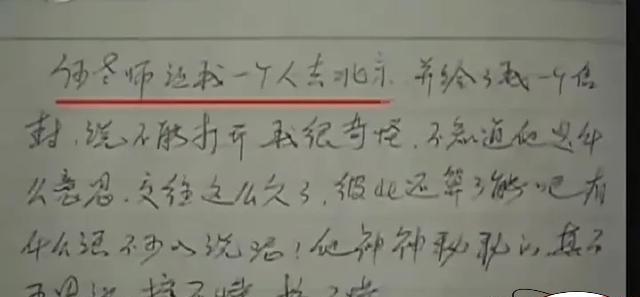 伍冬师让我一个人去北京.并给了我一个信
封,说不能打开 我很奇怪,不知道他是什
么意思.交往这么久了,彼此还算了解吧有
什么话不可以说呢!他神神秘秘的,其